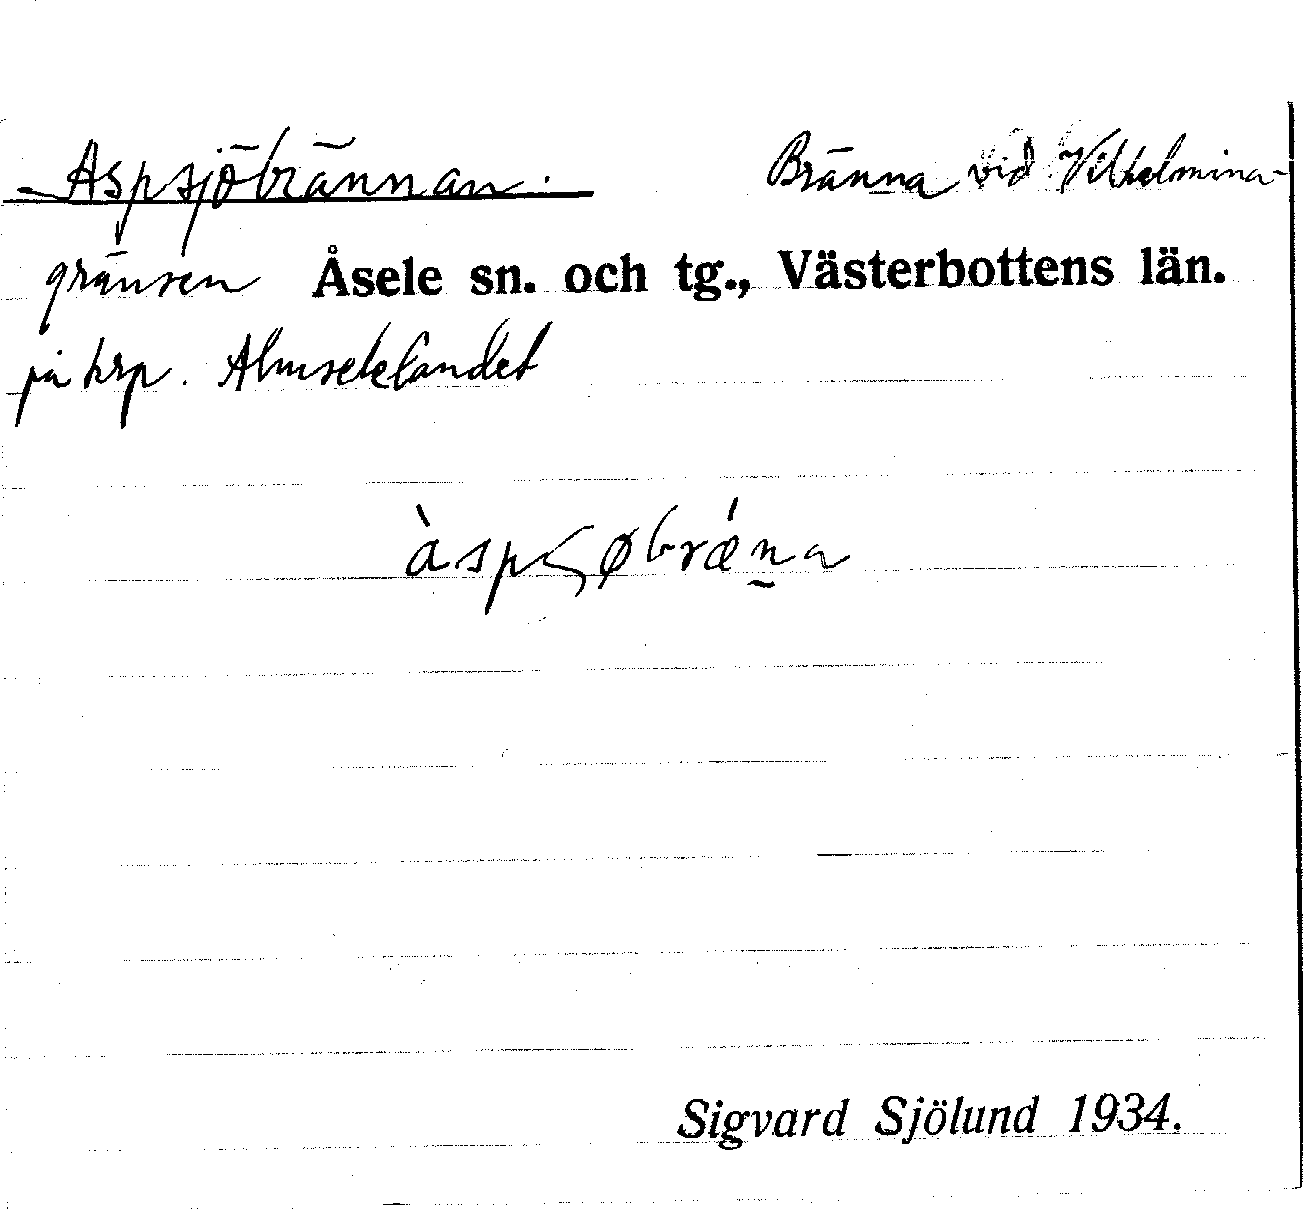 Aspsjöbrännan. Bränna vid Vilhelmina-
gränsen Åsele sn. och tg., Västerbottens län.
på krp. Almselelandet
Sigvard Sjölund 1934.